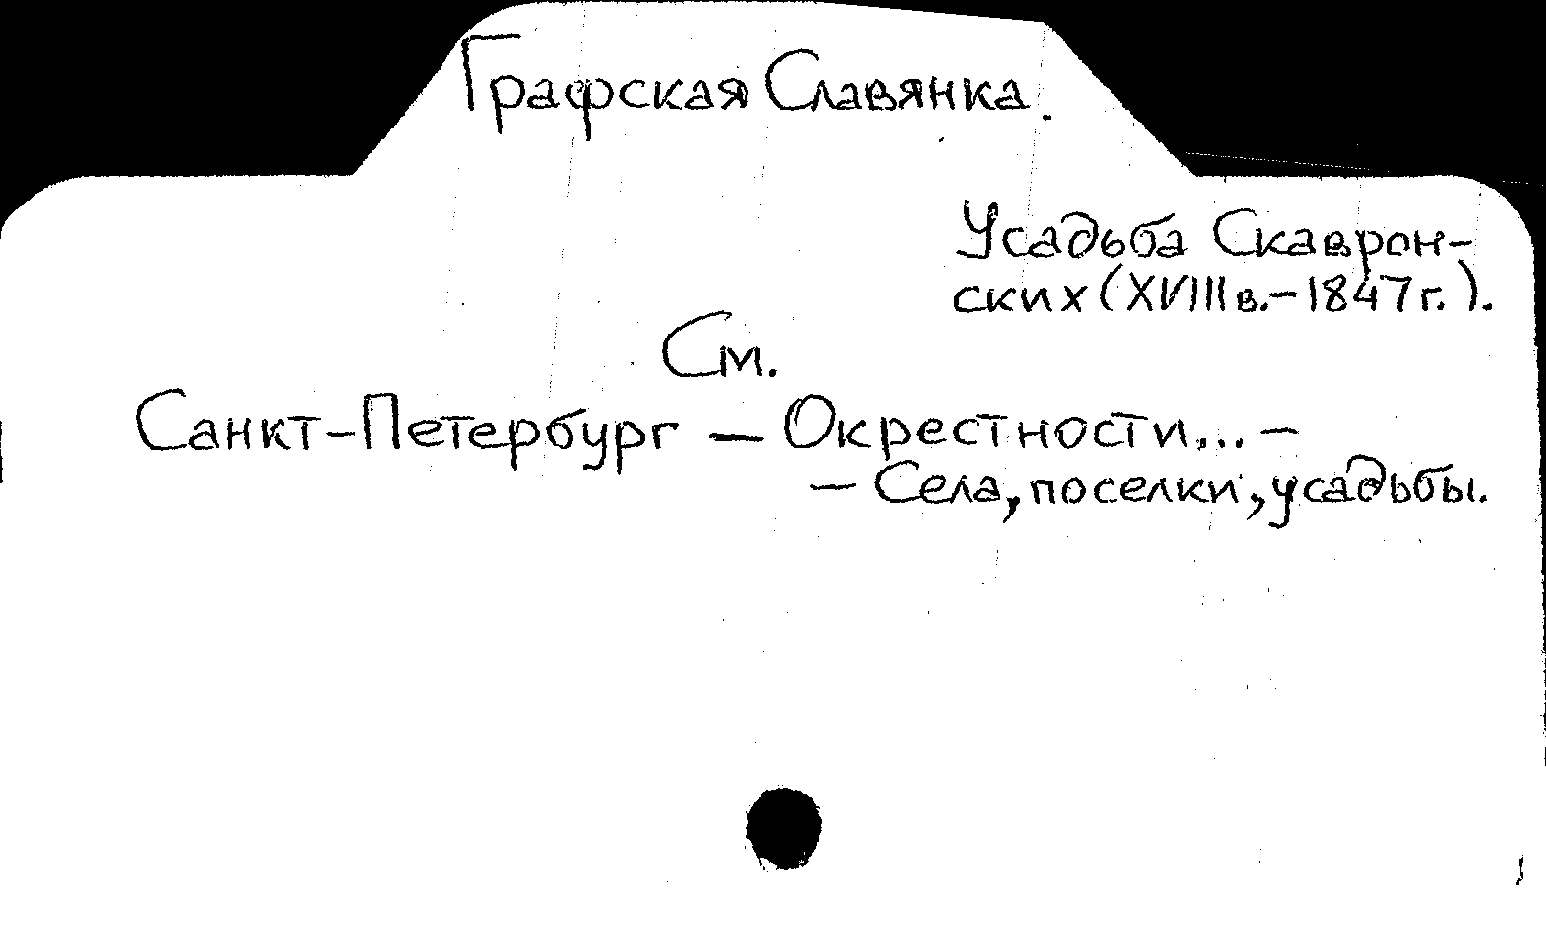 Графская Славянка.
Усадьба Скаврон-
ских (XVIII в.–1847 г.).
См.
Санкт-Петербург — Окрестности... –
– Села, поселки, усадьбы.